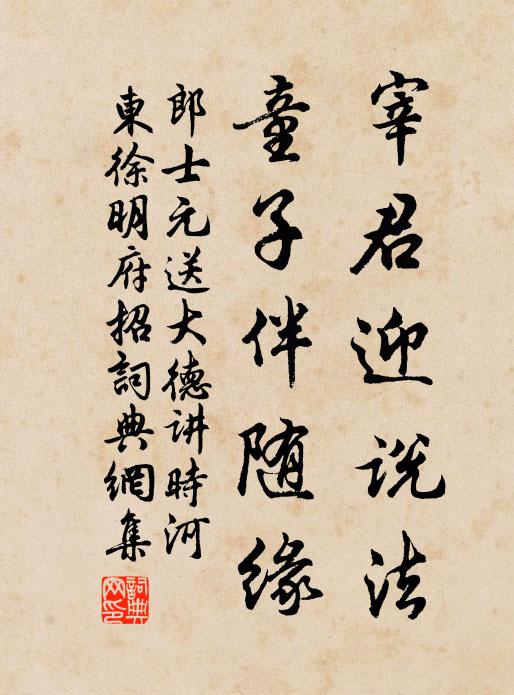 宰君迎说法
童子伴随缘
郎士元送大德讲时河
東徐明府招詞典網集
詞典网印